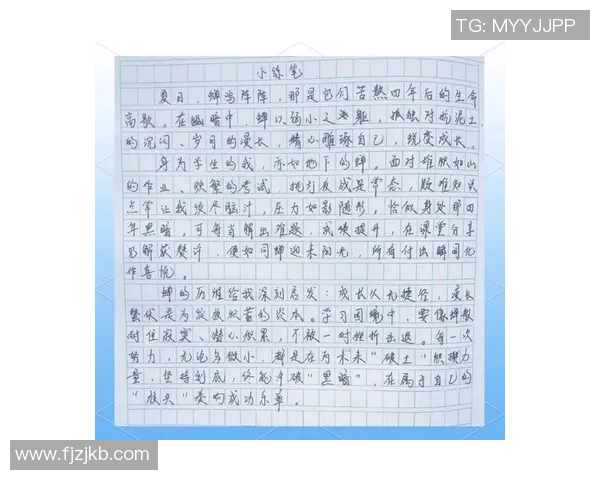 TG: MYYJJPP
小练笔
夏日，蝉鸣阵阵，那是它们苦熬四年后的生命
高歌。在幽暗中，蝉以弱小之躯，孤独对抗泥土
的沉闷、岁月的漫长，精心雕琢自己，蜕变成长。
身为学生的我，亦如地下的蝉。面对堆积如山
的作业、频繁的考试，挑灯夜战是常态，疑难知识
点常让我绞尽脑汁，压力如影随形，恰似身处那四
年黑暗。可每当解出难题，成绩提升，在课堂分享
见解获赞许，便如同蝉迎来阳光，所有付出瞬间化
作喜悦。
蝉的历程给我深刻启发：成长从无捷径，漫长
蛰伏是为绽放积蓄的资本。学习困境中，要像蝉般
耐住寂寞、潜心积累，不被一时挫折击退。每一次
努力，无论多微小，都是在为未来“破土”积攒力
量，坚持到底，终能冲破“黑暗”，在属于自己的
“枝头”奏响成功乐章。
www.fjzjkb.com